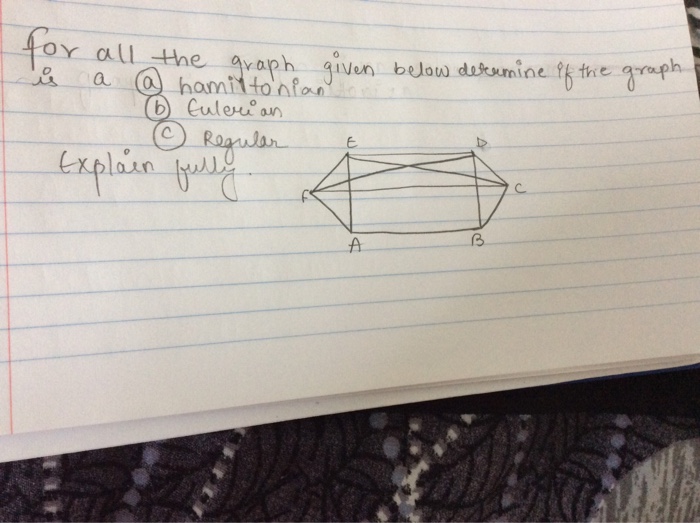 for all the graph given below determine if the graph
is a (a) hamiltonian
(b) Eulerian
(c) Regular
Explain fully.
E D
F C
A B